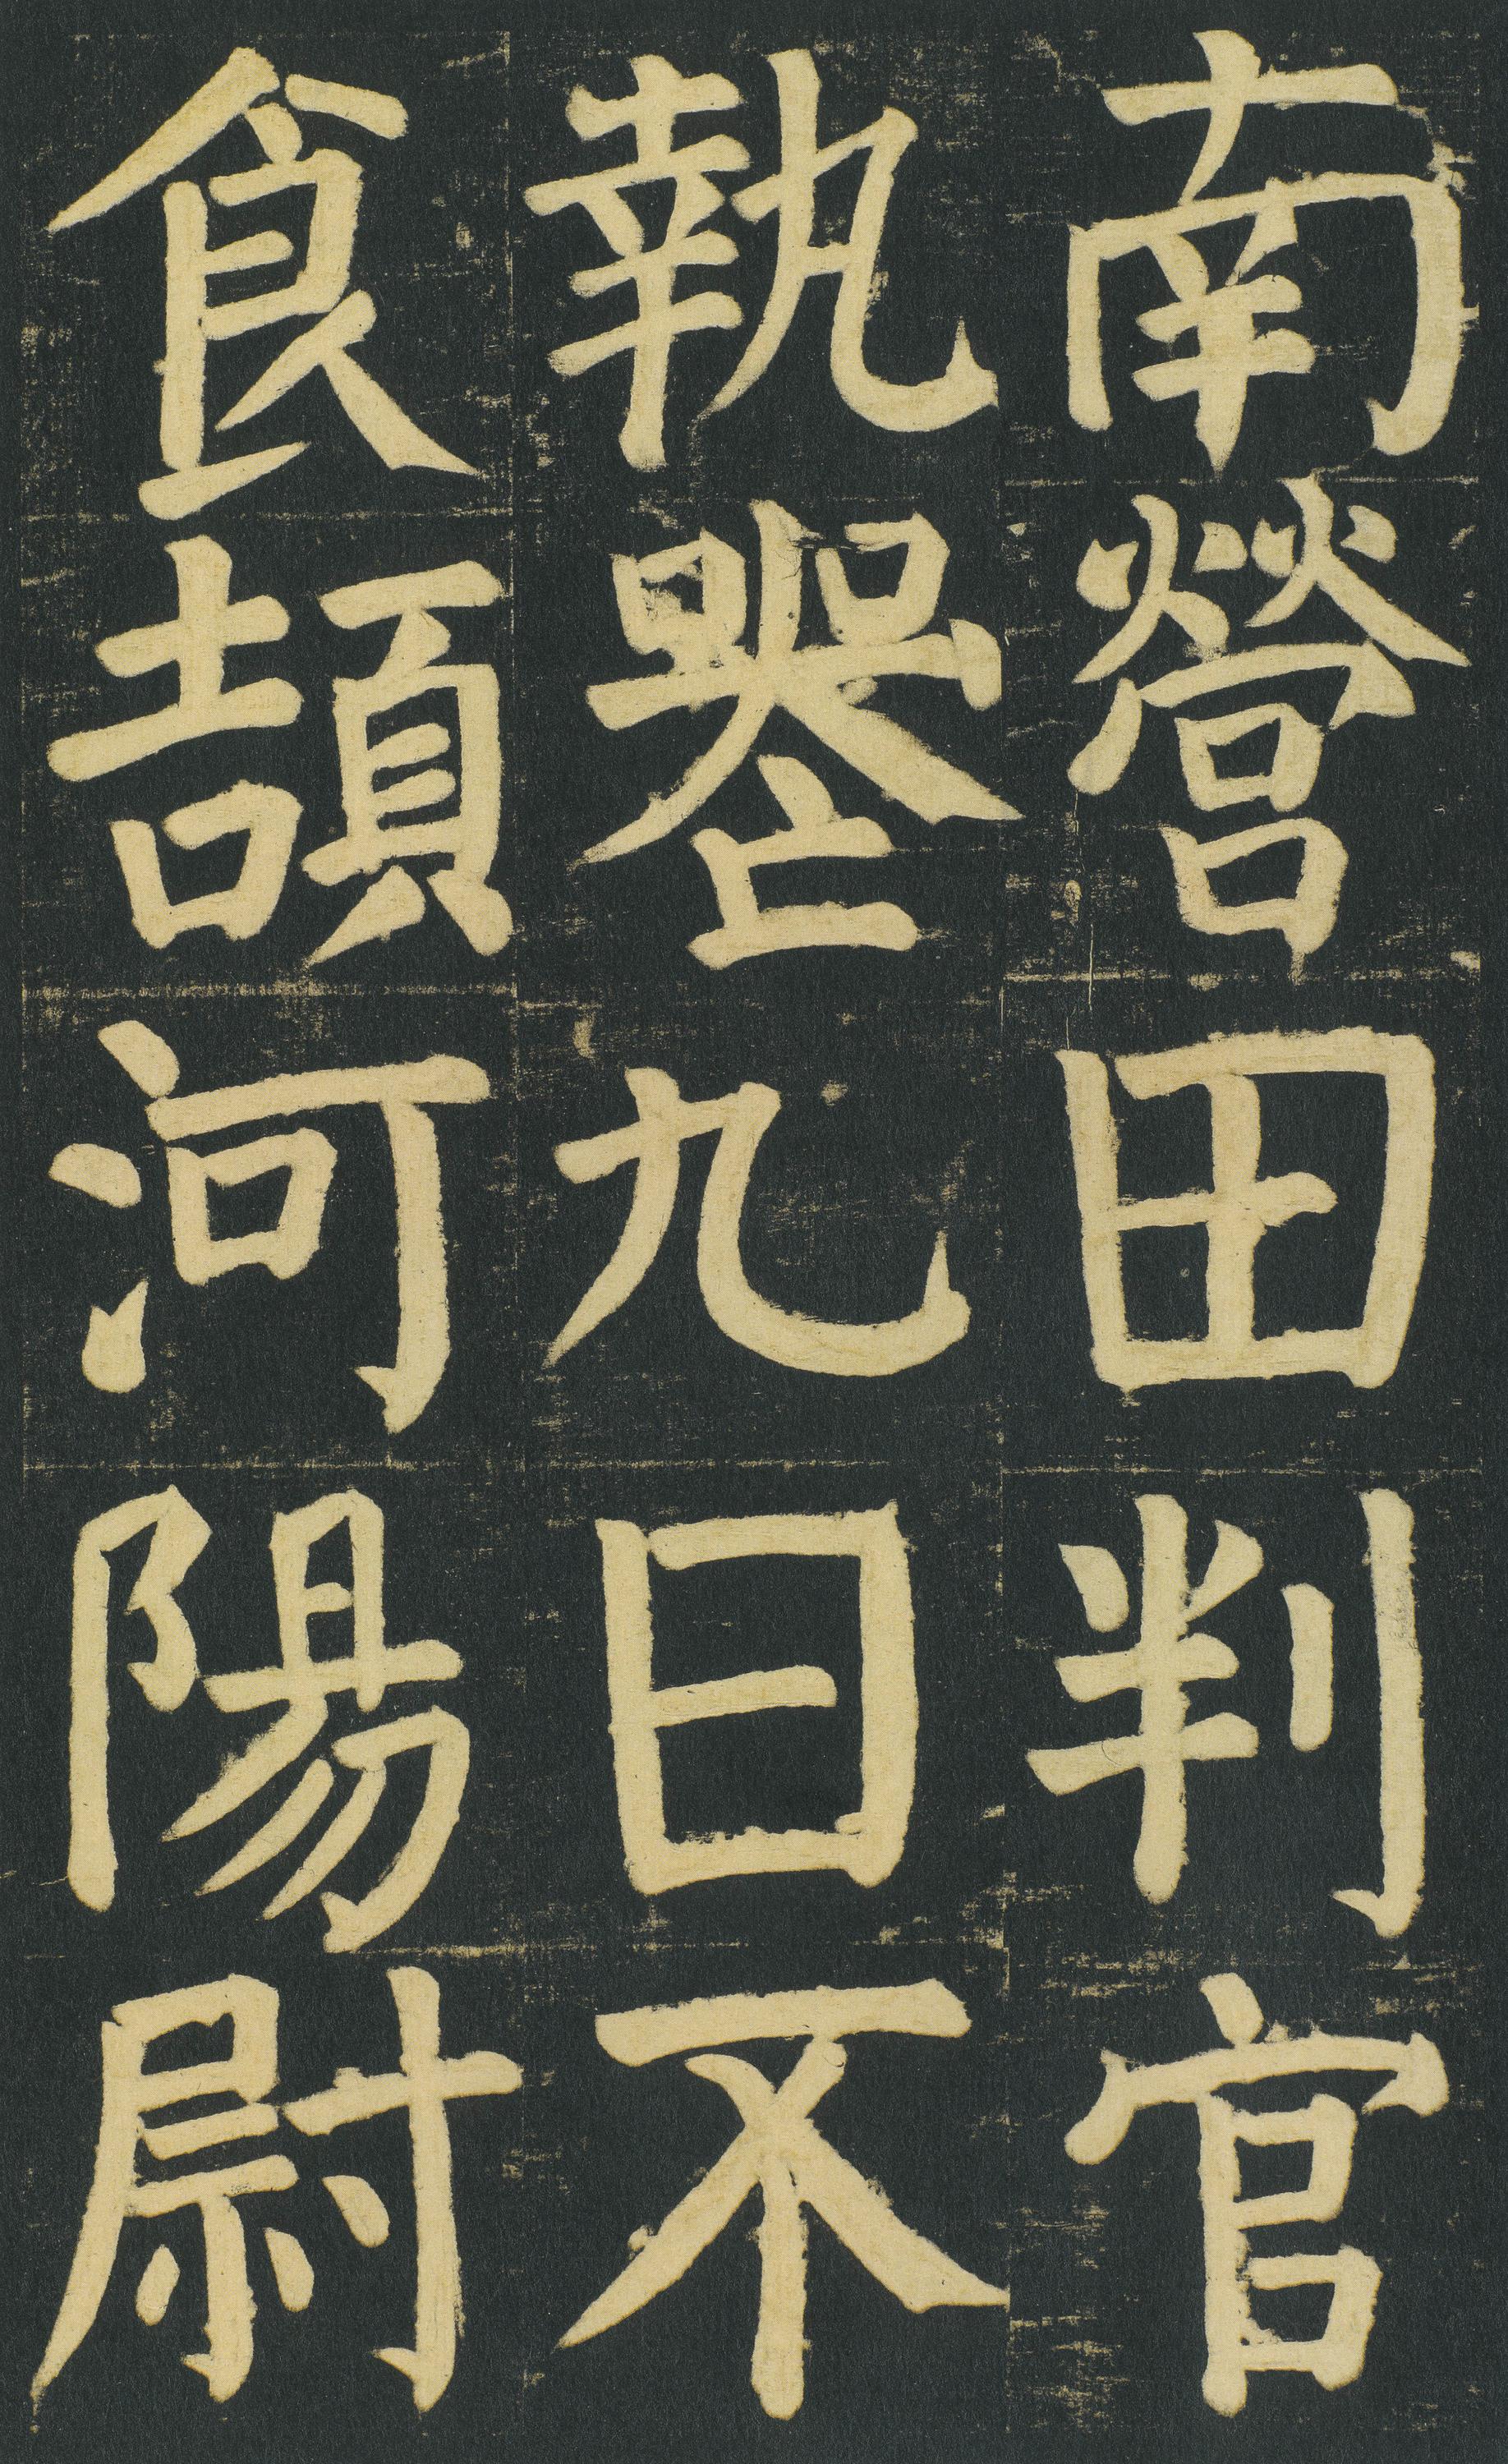 南營田判官
執喪九日不
食頡河陽尉